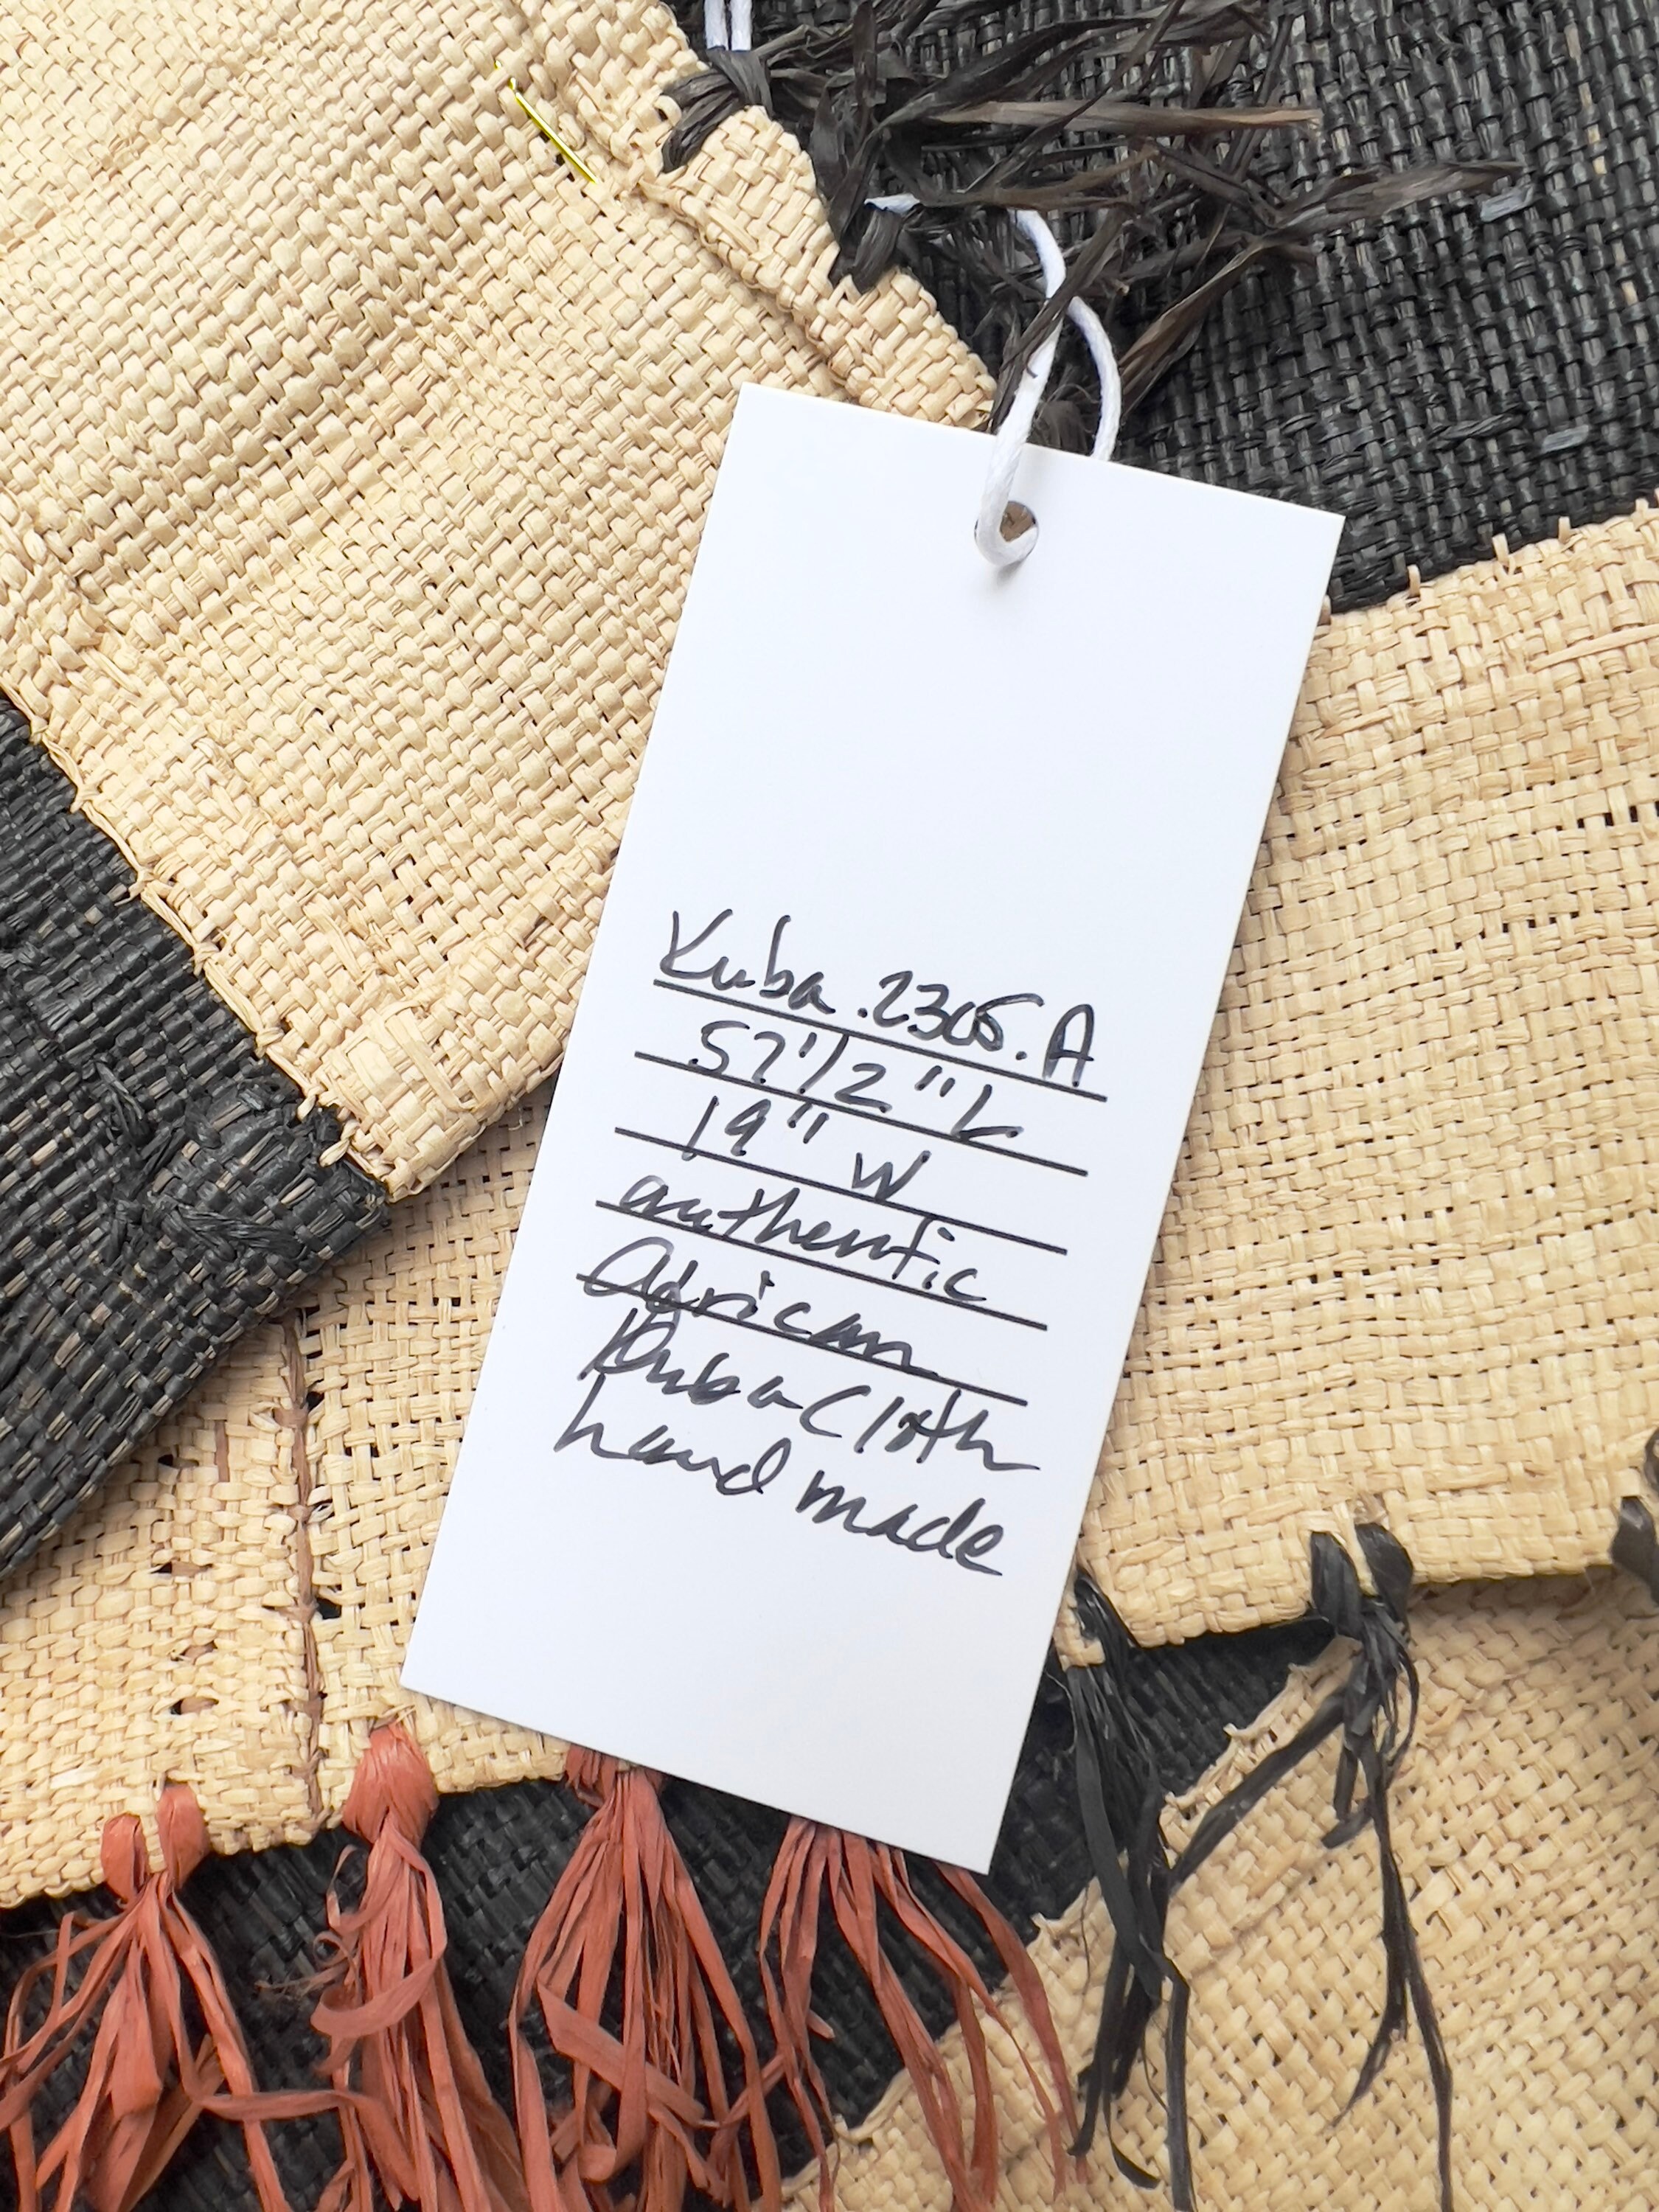 Kuba.2305.A
57 1/2" L
19" W
authentic
African
Kuba Cloth
hand made